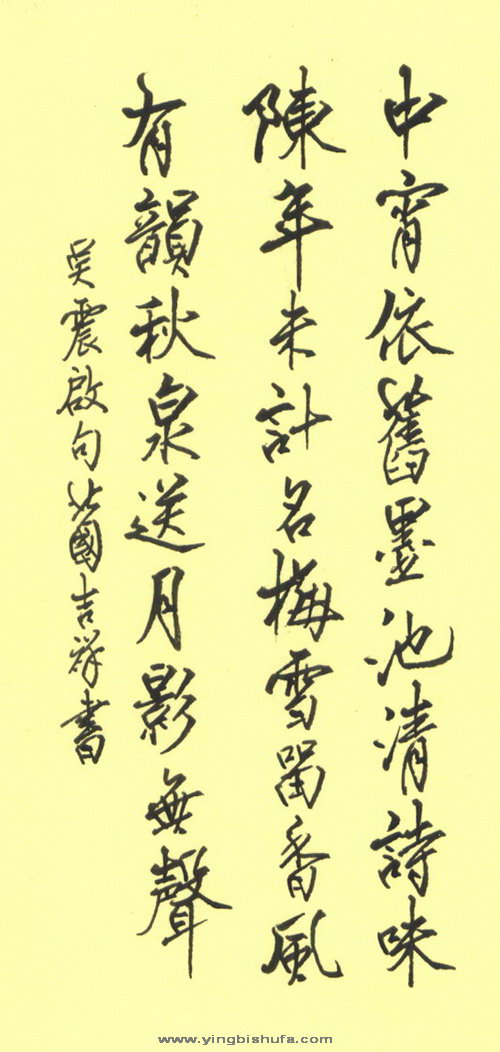 中宵依舊墨池清詩味
陳年未計名梅雪留香風
有韻秋泉送月影無聲
吴震啟句北國吉祥書
www.yingbishufa.com